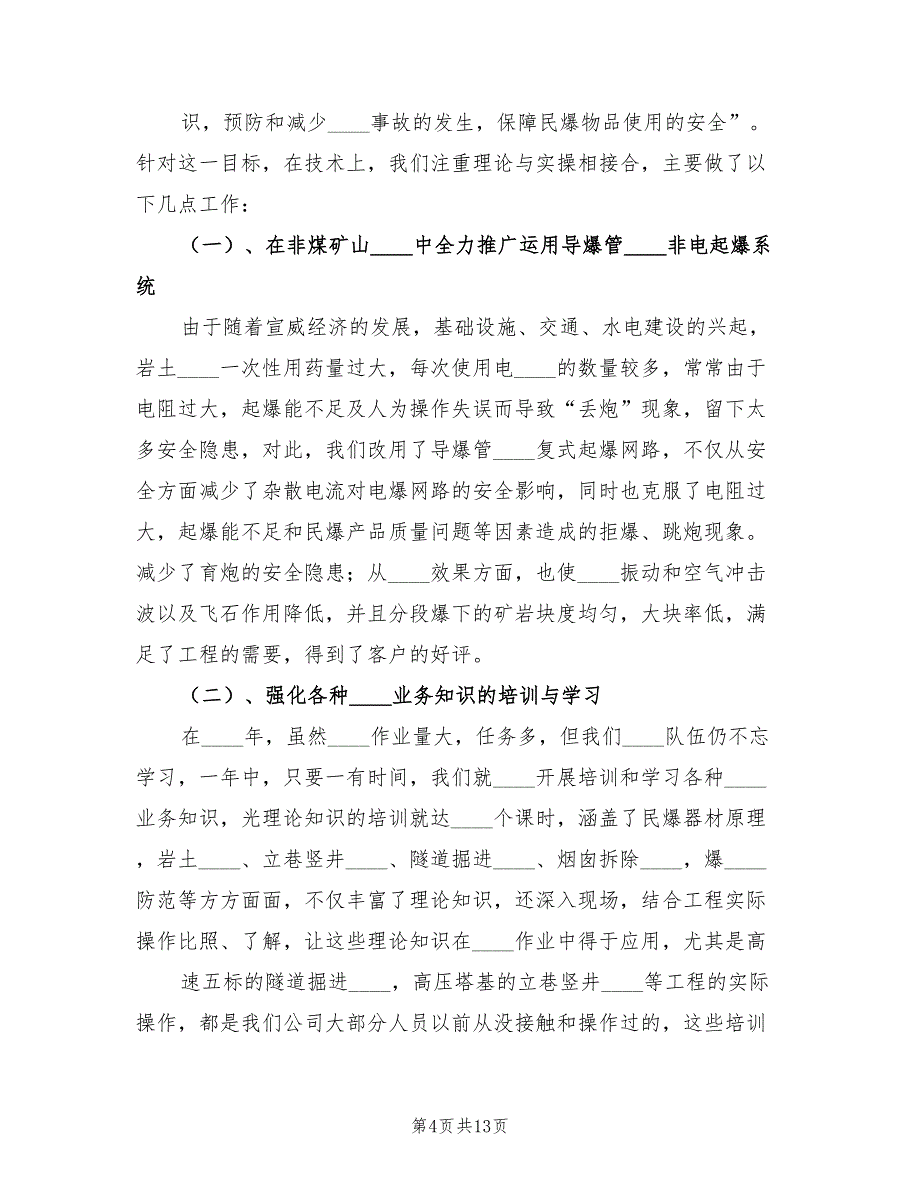 识，预防和减少____事故的发生，保障民爆物品使用的安全”。
针对这一目标，在技术上，我们注重理论与实操相接合，主要做了以
下几点工作：
（一）、在非煤矿山____中全力推广运用导爆管____非电起爆系
统
由于随着宣威经济的发展，基础设施、交通、水电建设的兴起，
岩土____一次性用药量过大，每次使用电____的数量较多，常常由于
电阻过大，起爆能不足及人为操作失误而导致“丢炮”现象，留下太
多安全隐患，对此，我们改用了导爆管____复式起爆网路，不仅从安
全方面减少了杂散电流对电爆网路的安全影响，同时也克服了电阻过
大，起爆能不足和民爆产品质量问题等因素造成的拒爆、跳炮现象。
减少了育炮的安全隐患；从____效果方面，也使____振动和空气冲击
波以及飞石作用降低，并且分段爆下的矿岩块度均匀，大块率低，满
足了工程的需要，得到了客户的好评。
（二）、强化各种____业务知识的培训与学习
在____年，虽然____作业量大，任务多，但我们____队伍仍不忘
学习，一年中，只要一有时间，我们就____开展培训和学习各种____
业务知识，光理论知识的培训就达____个课时，涵盖了民爆器材原理
，岩土____、立巷竖井____、隧道掘进____、烟囱拆除____，爆____
防范等方方面面，不仅丰富了理论知识，还深入现场，结合工程实际
操作比照、了解，让这些理论知识在____作业中得于应用，尤其是高
速五标的隧道掘进____，高压塔基的立巷竖井____等工程的实际
操作，都是我们公司大部分人员以前从没接触和操作过的，这些培训
第4页共13页